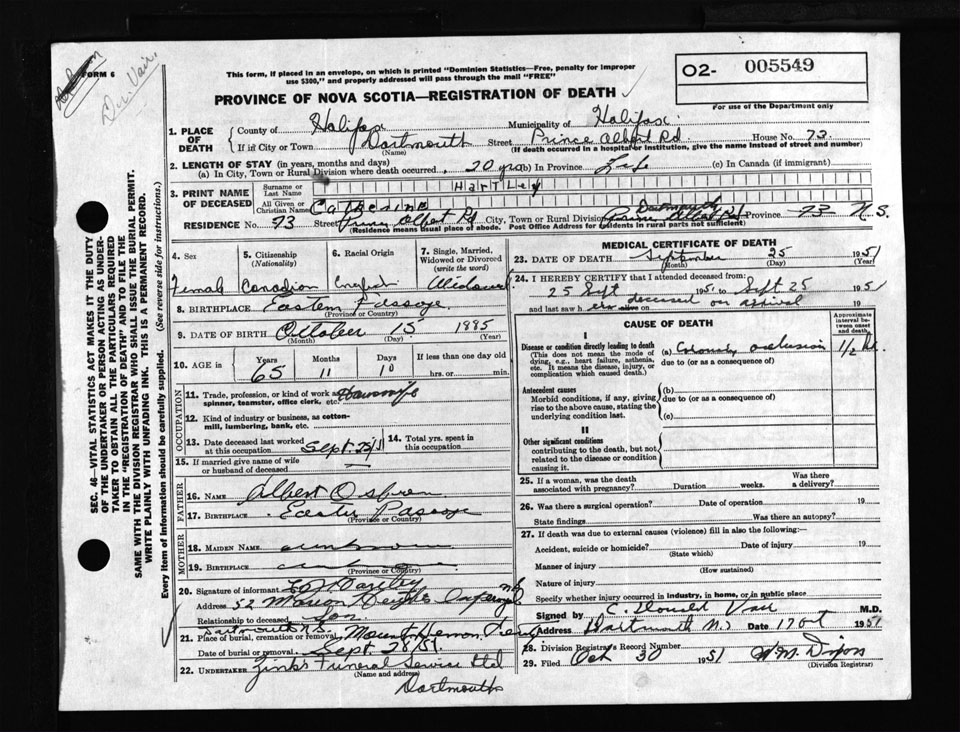 FORM 6
Dr. Vair.
This form, if placed in an envelope, on which is printed "Dominion Statistics—Free, penalty for improper
use $300," and properly addressed will pass through the mail "FREE"
O2- 005549
For use of the Department only
PROVINCE OF NOVA SCOTIA—REGISTRATION OF DEATH
1. PLACE OF DEATH
County of Halifax Municipality of Halifax
If in City or Town Dartmouth Street Prince Albert Rd House No. 73
(Name) (If death occurred in a hospital or institution, give the name instead of street and number)
2. LENGTH OF STAY (in years, months and days)
(a) In City, Town or Rural Division where death occurred, 20 yrs (b) In Province Life (c) In Canada (if immigrant)
3. PRINT NAME OF DECEASED
Surname or Last Name HARTLEY
All Given or Christian Names CATHERINE
RESIDENCE No. 73 Street Prince Albert Rd City, Town or Rural Division Dartmouth Prince Albert Rd Province 73 N.S.
(Residence means usual place of abode. Post Office Address for residents in rural parts not sufficient)
4. Sex Female
5. Citizenship (Nationality) Canadian
6. Racial Origin English
7. Single, Married, Widowed or Divorced (write the word) Widowed
8. BIRTHPLACE Eastern Passage
(Province or Country)
9. DATE OF BIRTH October 15 1885
(Month) (Day) (Year)
10. AGE in Years 65 Months 11 Days 10 If less than one day old hrs. or min.
OCCUPATION
11. Trade, profession, or kind of work as spinner, teamster, office clerk, etc. Housewife
12. Kind of industry or business, as cotton-mill, lumbering, bank, etc.
13. Date deceased last worked at this occupation Sept. 25/51
14. Total yrs. spent in this occupation
15. If married give name of wife or husband of deceased
FATHER
16. NAME Albert Osburn
17. BIRTHPLACE Easter Passage
(Province or Country)
MOTHER
18. MAIDEN NAME unknown
19. BIRTHPLACE
(Province or Country)
20. Signature of informant Hartley
Address 52 Marion Heights
Relationship to deceased Son
Dartmouth N.S.
21. Place of burial, cremation or removal Mount Hermon
Date of burial or removal Sept. 28/51.
22. UNDERTAKER Zinks Funeral Service Ltd
(Name and address)
Dartmouth
MEDICAL CERTIFICATE OF DEATH
23. DATE OF DEATH September 25 1951
(Month) (Day) (Year)
24. I HEREBY CERTIFY that I attended deceased from:
25 Sept 1951 to Sept 25 1951
and last saw her alive on deceased on arrival 19
CAUSE OF DEATH
Approximate interval between onset and death
I
Disease or condition directly leading to death
(This does not mean the mode of dying, e.g., heart failure, asthenia, etc. It means the disease, injury, or complication which caused death.)
(a) Coronary occlusion 1/2 hr.
due to (or as a consequence of)
Antecedent causes
Morbid conditions, if any, giving rise to the above cause, stating the underlying condition last.
(b)
due to (or as a consequence of)
(c)
II
Other significant conditions contributing to the death, but not related to the disease or condition causing it.
25. If a woman, was the death associated with pregnancy? Duration weeks. Was there a delivery?
26. Was there a surgical operation? Date of operation 19
State findings Was there an autopsy?
27. If death was due to external causes (violence) fill in also the following:—
Accident, suicide or homicide? Date of injury 19
(State which)
Manner of injury
(How sustained)
Nature of injury
Specify whether injury occurred in industry, in home, or in public place
Signed by C. Donald Vair M.D.
Address Dartmouth N.S Date 17 Oct 1951
28. Division Registrar's Record Number
29. Filed Oct 30 1951 W.M. Dixon
(Division Registrar)
SEC. 46—VITAL STATISTICS ACT MAKES IT THE DUTY
OF THE UNDERTAKER OR PERSON ACTING AS UNDER-
TAKER TO OBTAIN ALL THE PARTICULARS REQUIRED
IN THE "REGISTRATION OF DEATH" AND TO FILE THE
SAME WITH THE DIVISION REGISTRAR WHO SHALL ISSUE THE BURIAL PERMIT.
WRITE PLAINLY WITH UNFADING INK. THIS IS A PERMANENT RECORD.
Every item of information should be carefully supplied. (See reverse side for instructions.)